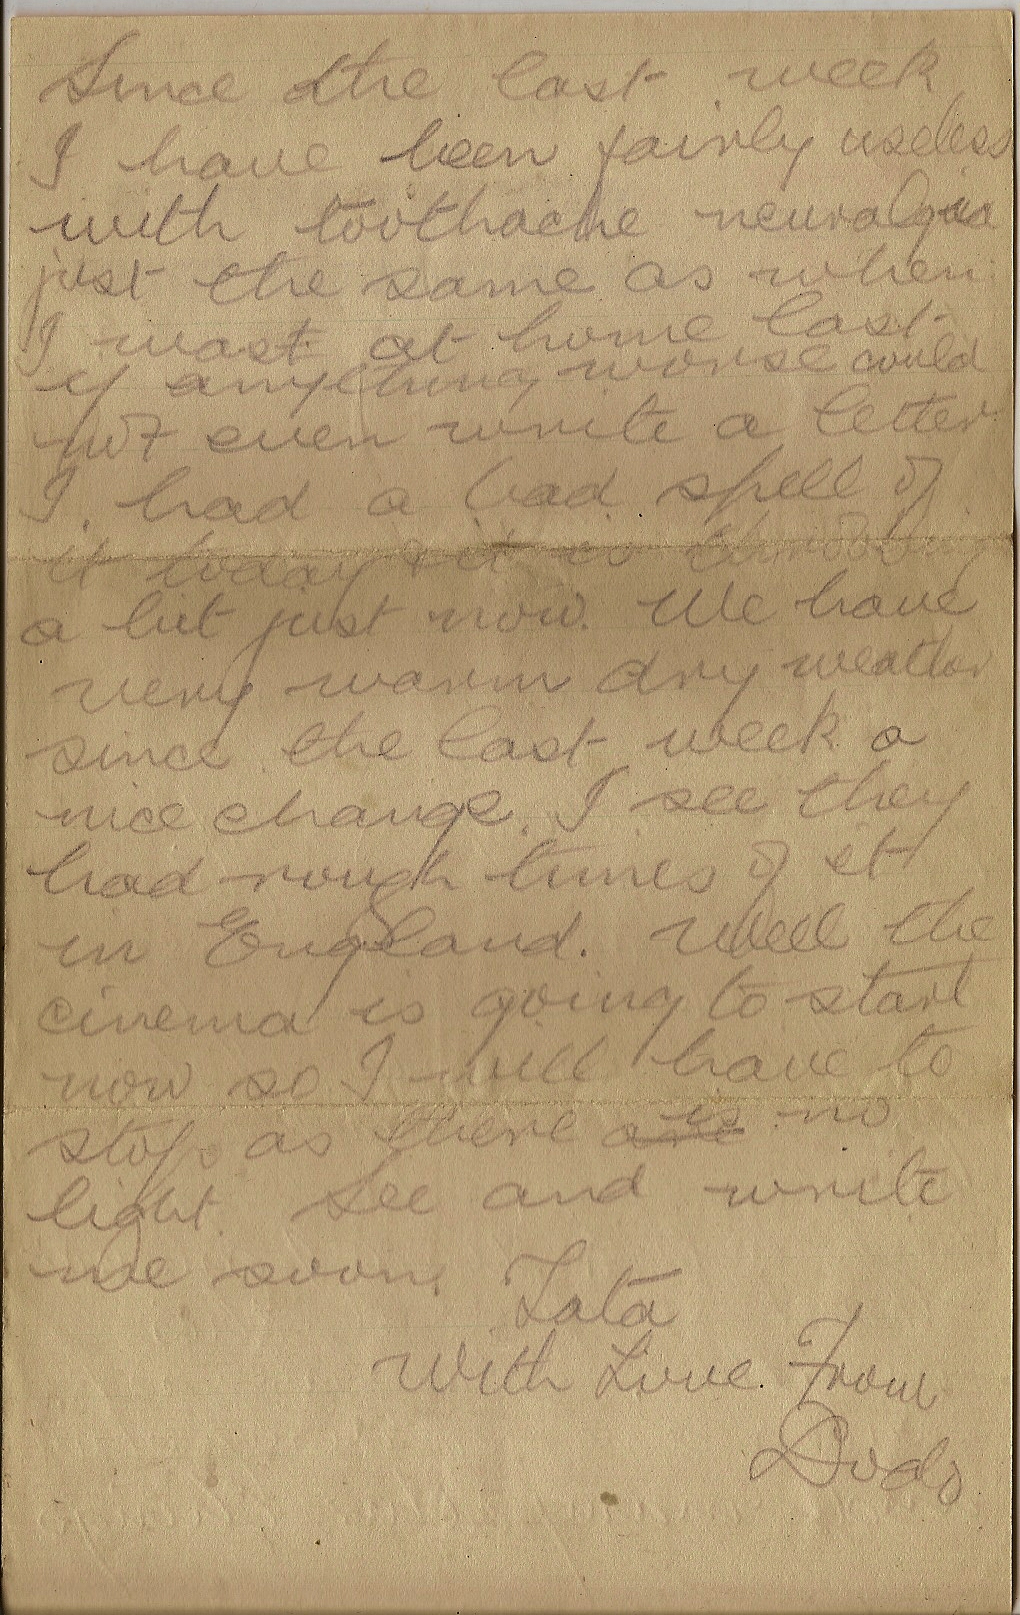 Since the last week
I have been fairly useless
with toothache neuralgia
just the same as when
I wast at home last
if anything worse could
not even write a letter
I had a bad spell of
it today it is throbbing
a bit just now. We have
very warm dry weather
since the last week a
nice change. I see they
had rough times of it
in England. Well the
cinema is going to start
now so I will have to
stop as there are is no
light. See and write
me soon.
Tata
With Love. From
Dodo